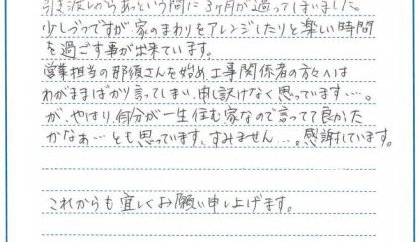 引き渡しからあっという間に3ヶ月が過ってしまいました。
少しづつですが、家のまわりをアレンジしたりと楽しい時間
を過ごす事が出来ています。
営業担当の那須さんを始め、工事関係者の方々へは
わがままばかり言ってしまい、申し訳けなく思っています…。
が、やはり、自分が一生住む家なので言ってて良かった
かなぁ…とも思っています。すみません…。感謝しています。
これからも宜しくお願い申し上げます。